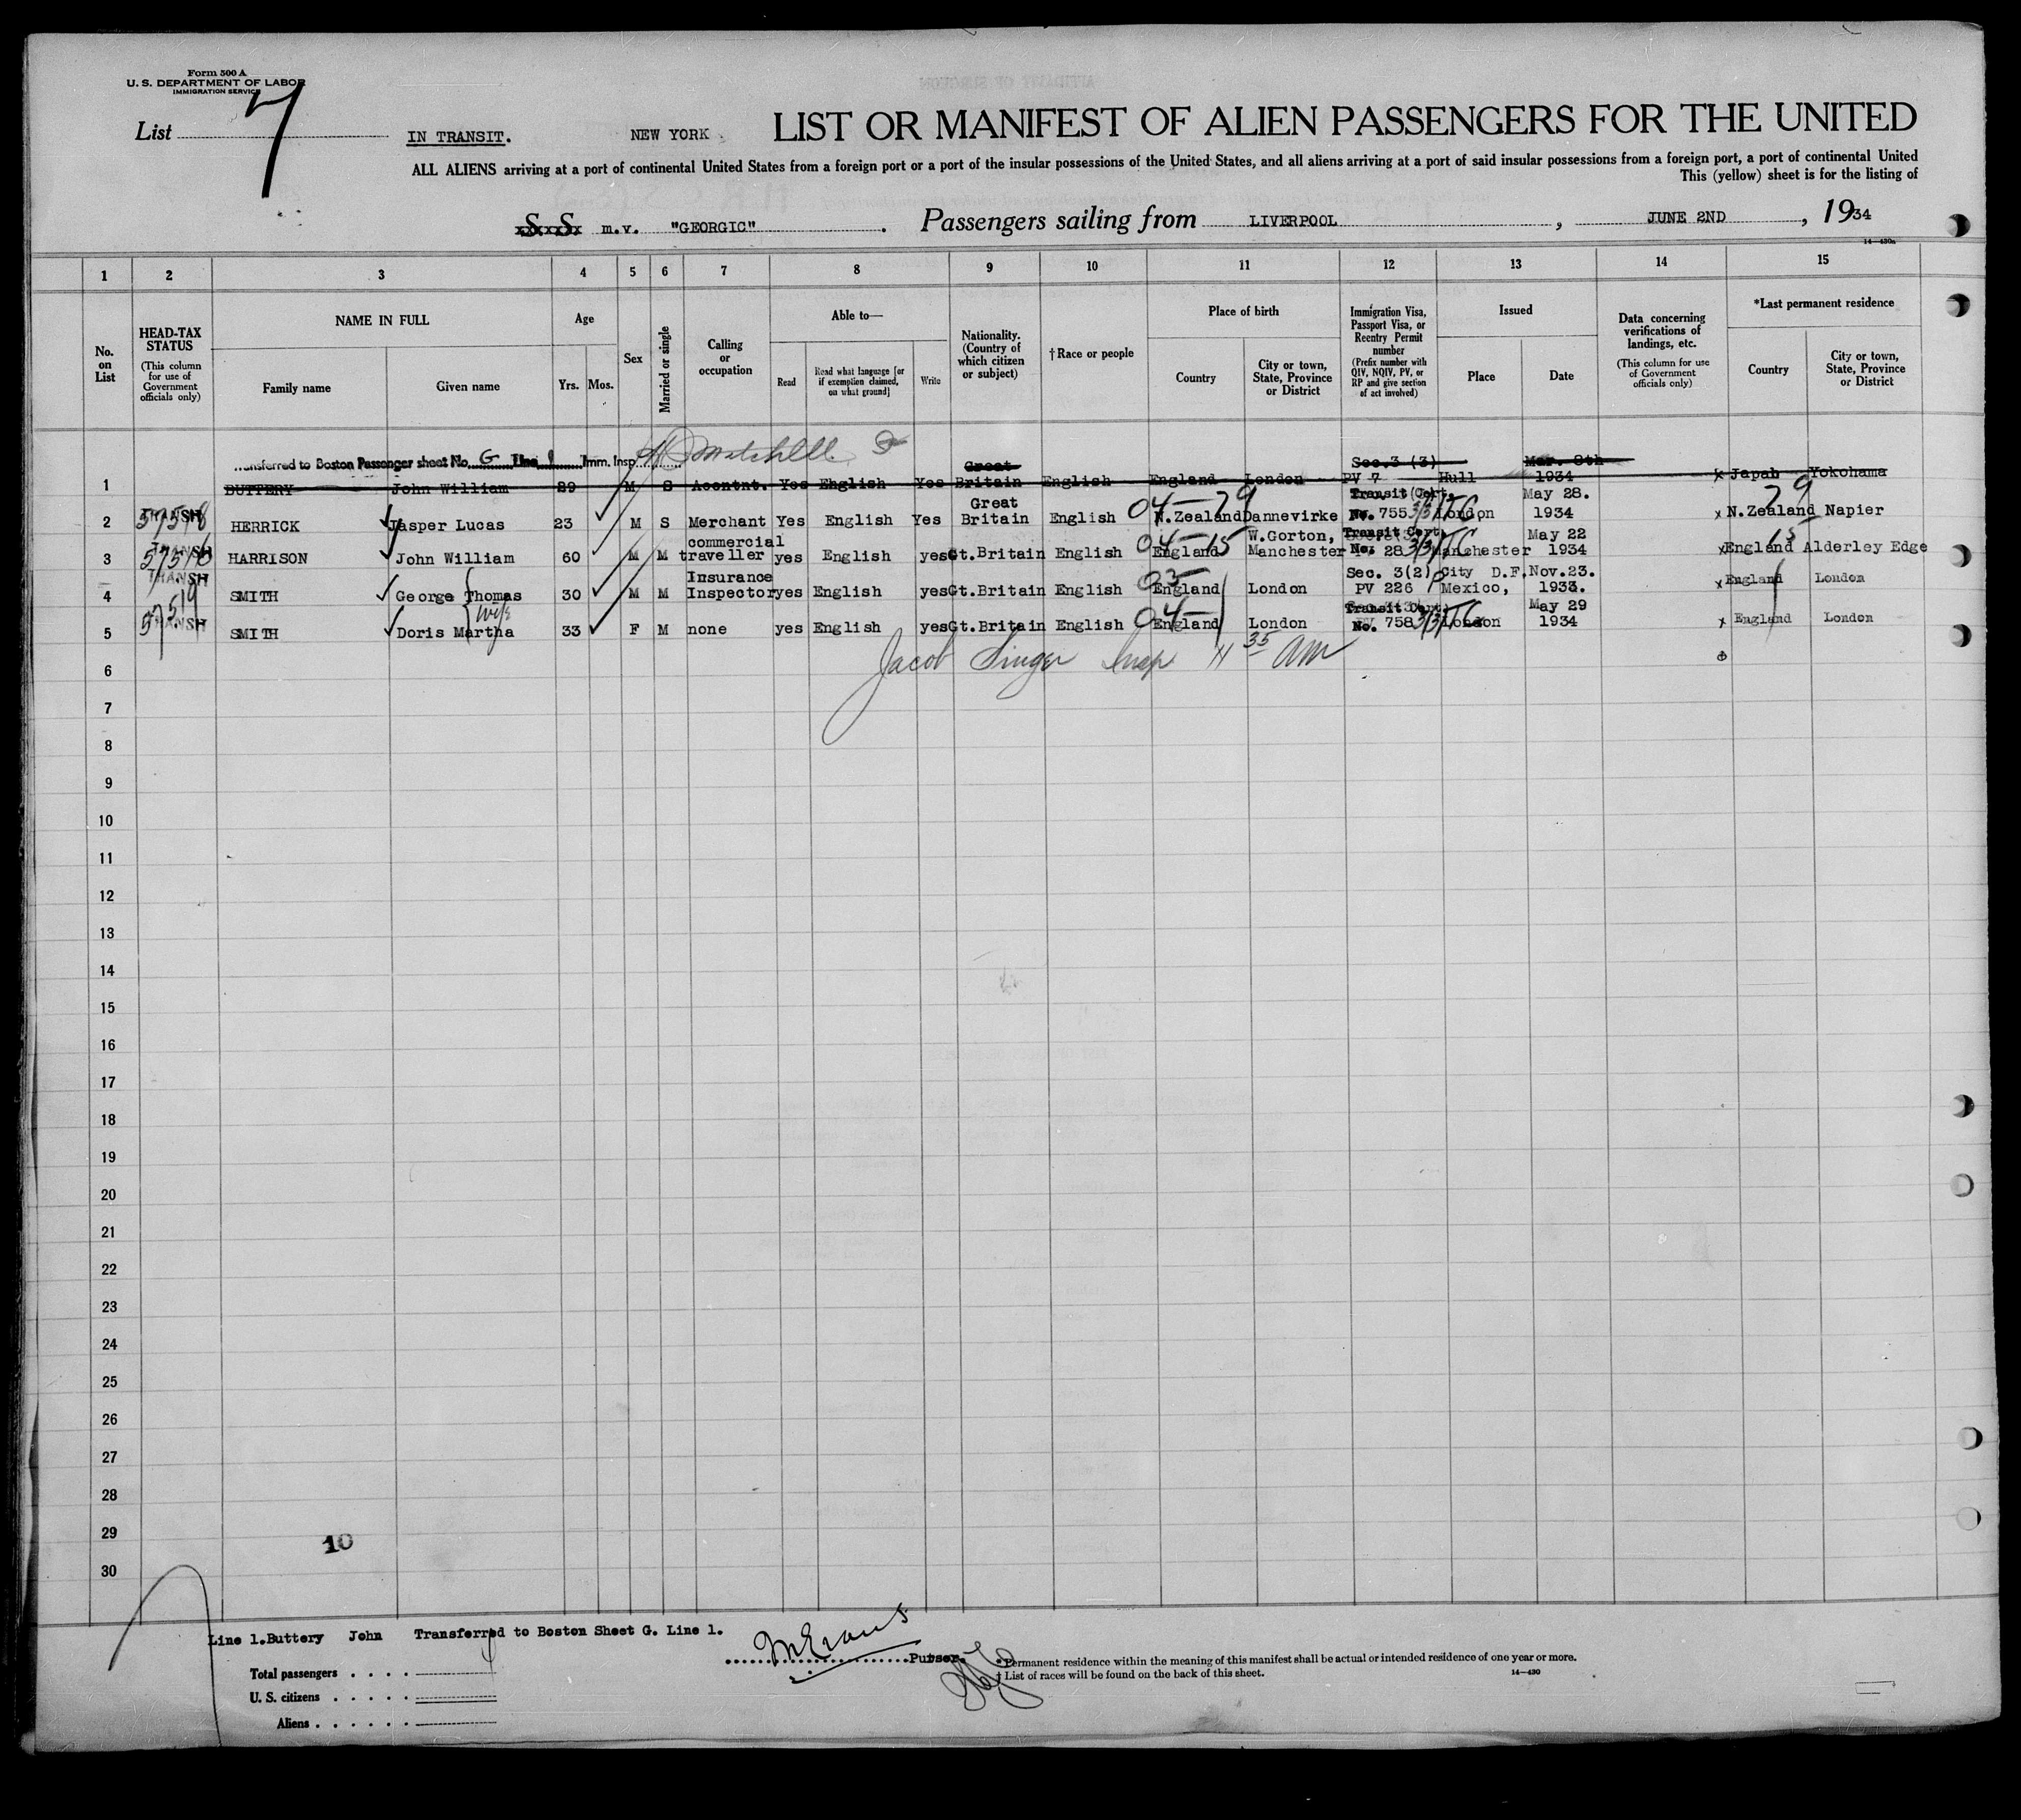 Form 500 A
U. S. DEPARTMENT OF LABOR
IMMIGRATION SERVICE
List 7 IN TRANSIT. NEW YORK LIST OR MANIFEST OF ALIEN PASSENGERS FOR THE UNITED
ALL ALIENS arriving at a port of continental United States from a foreign port or a port of the insular possessions of the United States, and all aliens arriving at a port of said insular possessions from a foreign port, a port of continental United
This (yellow) sheet is for the listing of
S S m.v. "GEORGIC" . Passengers sailing from LIVERPOOL , JUNE 2ND , 1934
14—430a
1 2 3 4 5 6 7 8 9 10 11 12 13 14 15
No. on List
HEAD-TAX STATUS (This column for use of Government officials only)
NAME IN FULL
Family name
Given name
Age
Yrs.
Mos.
Sex
Married or single
Calling or occupation
Able to—
Read
Read what language [or if exemption claimed, on what ground]
Write
Nationality. (Country of which citizen or subject)
†Race or people
Place of birth
Country
City or town, State, Province or District
Immigration Visa, Passport Visa, or Reentry Permit number (Prefix number with QIV, NQIV, PV, or RP and give section of act involved)
Issued
Place
Date
Data concerning verifications of landings, etc. (This column for use of Government officials only)
*Last permanent residence
Country
City or town, State, Province or District
Transferred to Boston Passenger sheet No. G Line 1 Imm. Insp. Mitchell
1 BUTTERY John William 29 M S Acontnt. Yes English Yes Great Britain English England London Sec.3 (3) PV 7 Hull Mar. 8th 1934 x Japan Yokohama
2 TRANSH 57518 HERRICK Jasper Lucas 23 M S Merchant Yes English Yes Great Britain English 04-79 N.Zealand Dannevirke Transit Cert. No. 755 3/3/TC London May 28. 1934 x N.Zealand Napier 79
3 TRANSH HARRISON John William 60 M M commercial traveller yes English yes Gt.Britain English 04-15 England W.Gorton, Manchester Transit Cert. No. 28 3/3/TC Manchester May 22 1934 x England Alderley Edge 15
4 TRANSH SMITH George Thomas 30 M M Insurance Inspector yes English yes Gt.Britain English 03- England London Sec. 3(2) PV 226 City D.F. Mexico, Nov.23. 1933. x England London
5 TRANSH 57519 SMITH Doris Martha wife 33 F M none yes English yes Gt.Britain English 04- England London Transit Cert. No. 758 3/3/TC London May 29 1934 x England London
Jacob Singer Insp 11 35 AM
6
7
8
9
10
11
12
13
14
15
16
17
18
19
20
21
22
23
24
25
26
27
28
29
10
30
Line 1.Buttery John Transferred to Boston Sheet G. Line 1.
M Evans Purser.
Total passengers . . . .
U. S. citizens . . . . .
Aliens . . . . . .
*Permanent residence within the meaning of this manifest shall be actual or intended residence of one year or more.
†List of races will be found on the back of this sheet.
14—430